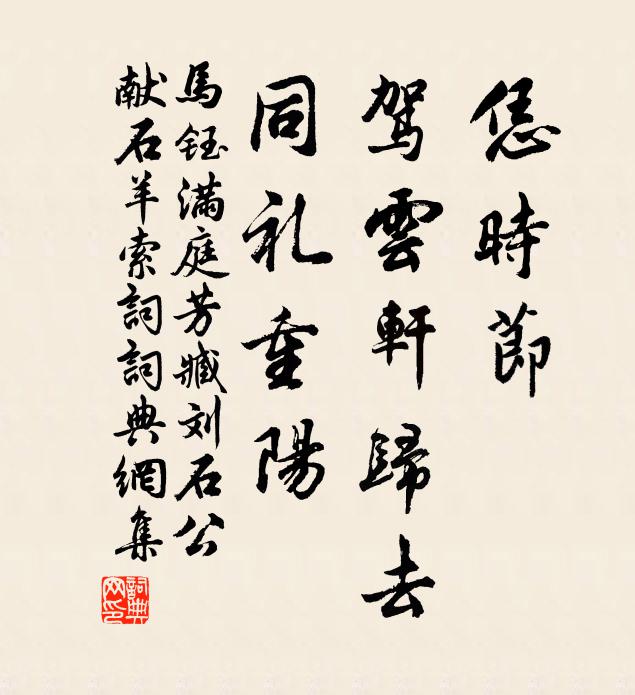 恁時節
駕雲軒歸去
同礼重陽
馬鈺滿庭芳臧刘石公
献石羊索詞詞典網集
詞典网印